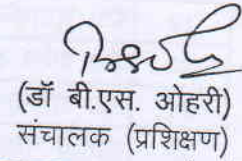 (डॉ बी.एस. ओहरी)
संचालक (प्रशिक्षण)